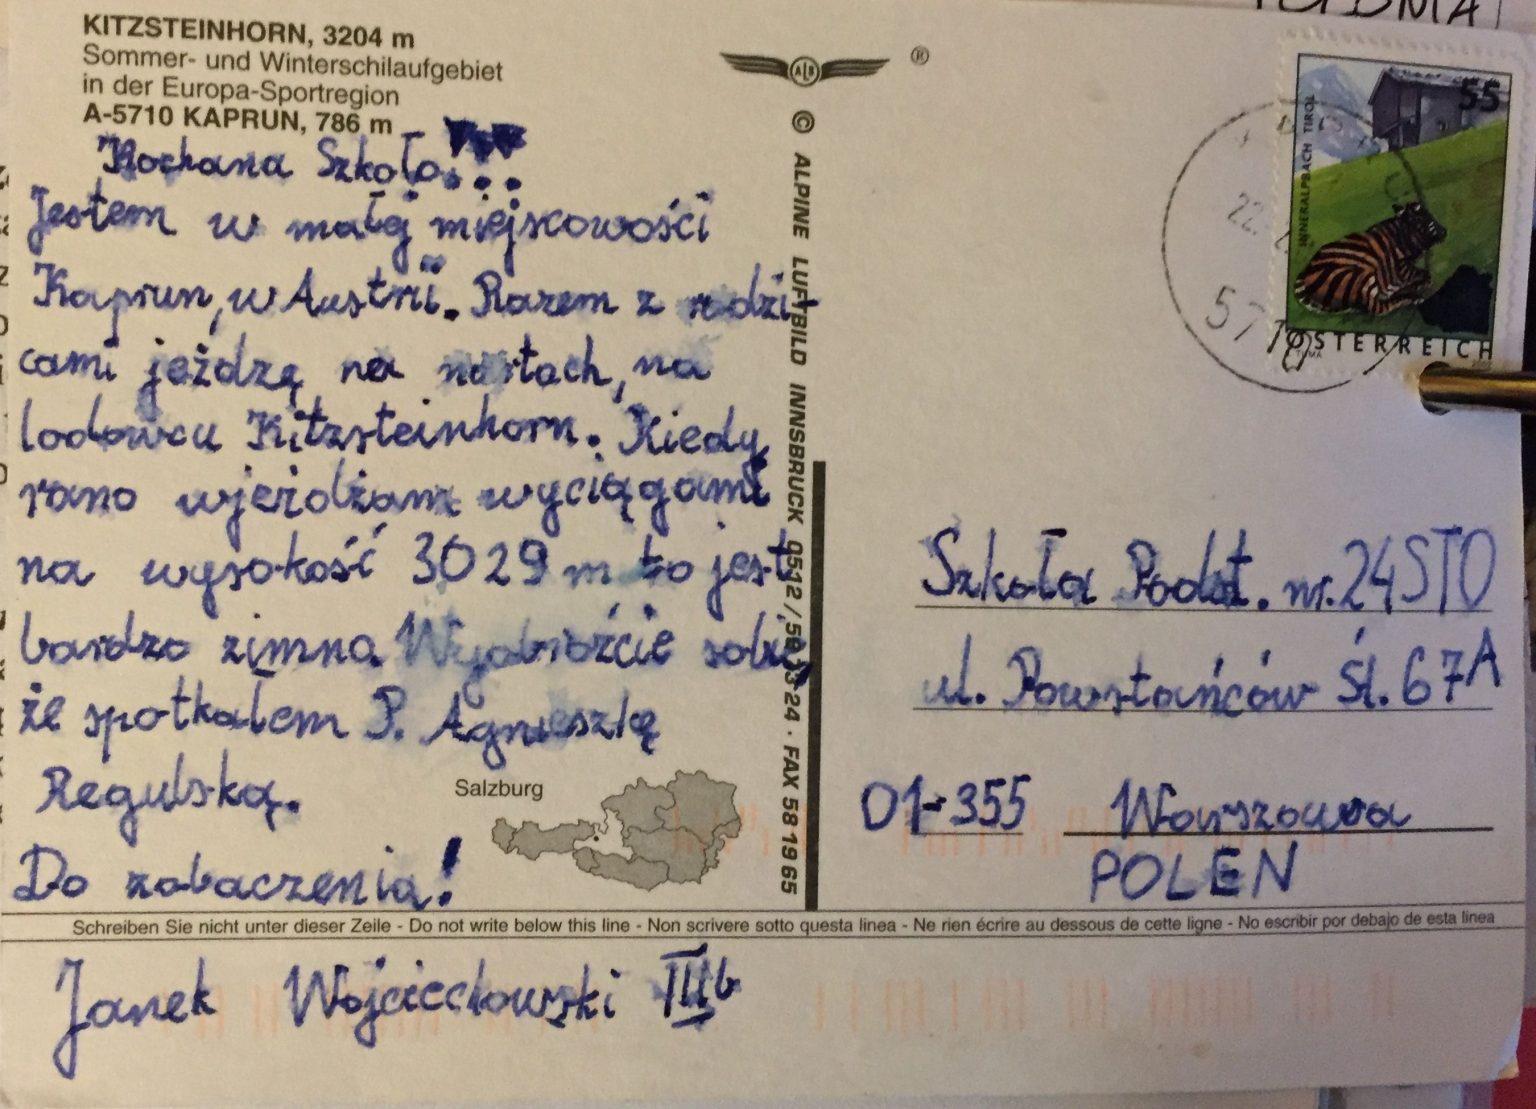 KITZSTEINHORN, 3204 m
Sommer- und Winterschilaufgebiet
in der Europa-Sportregion
A-5710 KAPRUN, 786 m
Kochana Szkoło...
Jestem w małej miejscowości
Kaprun, w Austrii. Razem z rodzi-
cami jeżdżę na nartach, na
lodowcu Kitzsteinhorn. Kiedy
rano wjeżdżam wyciągami
na wysokość 3029 m to jest
bardzo zimno. Wyobraźcie sobie,
że spotkałem P. Agnieszkę
Regulską.
Do zobaczenia!
Salzburg
Schreiben Sie nicht unter dieser Zeile - Do not write below this line - Non scrivere sotto questa linea - Ne rien écrire au dessous de cette ligne - No escribir por debajo de esta linea
Janek Wojciechowski III b
ALB ®
© ALPINE LUFTBILD INNSBRUCK 0512 / 58 13 24 · FAX 58 19 65
55
INNERALPBACH TIROL
ÖSTERREICH
22.
5710
Szkoła Podst. nr. 24 STO
ul. Powstańców Śl. 67A
01-355 Warszawa
POLEN